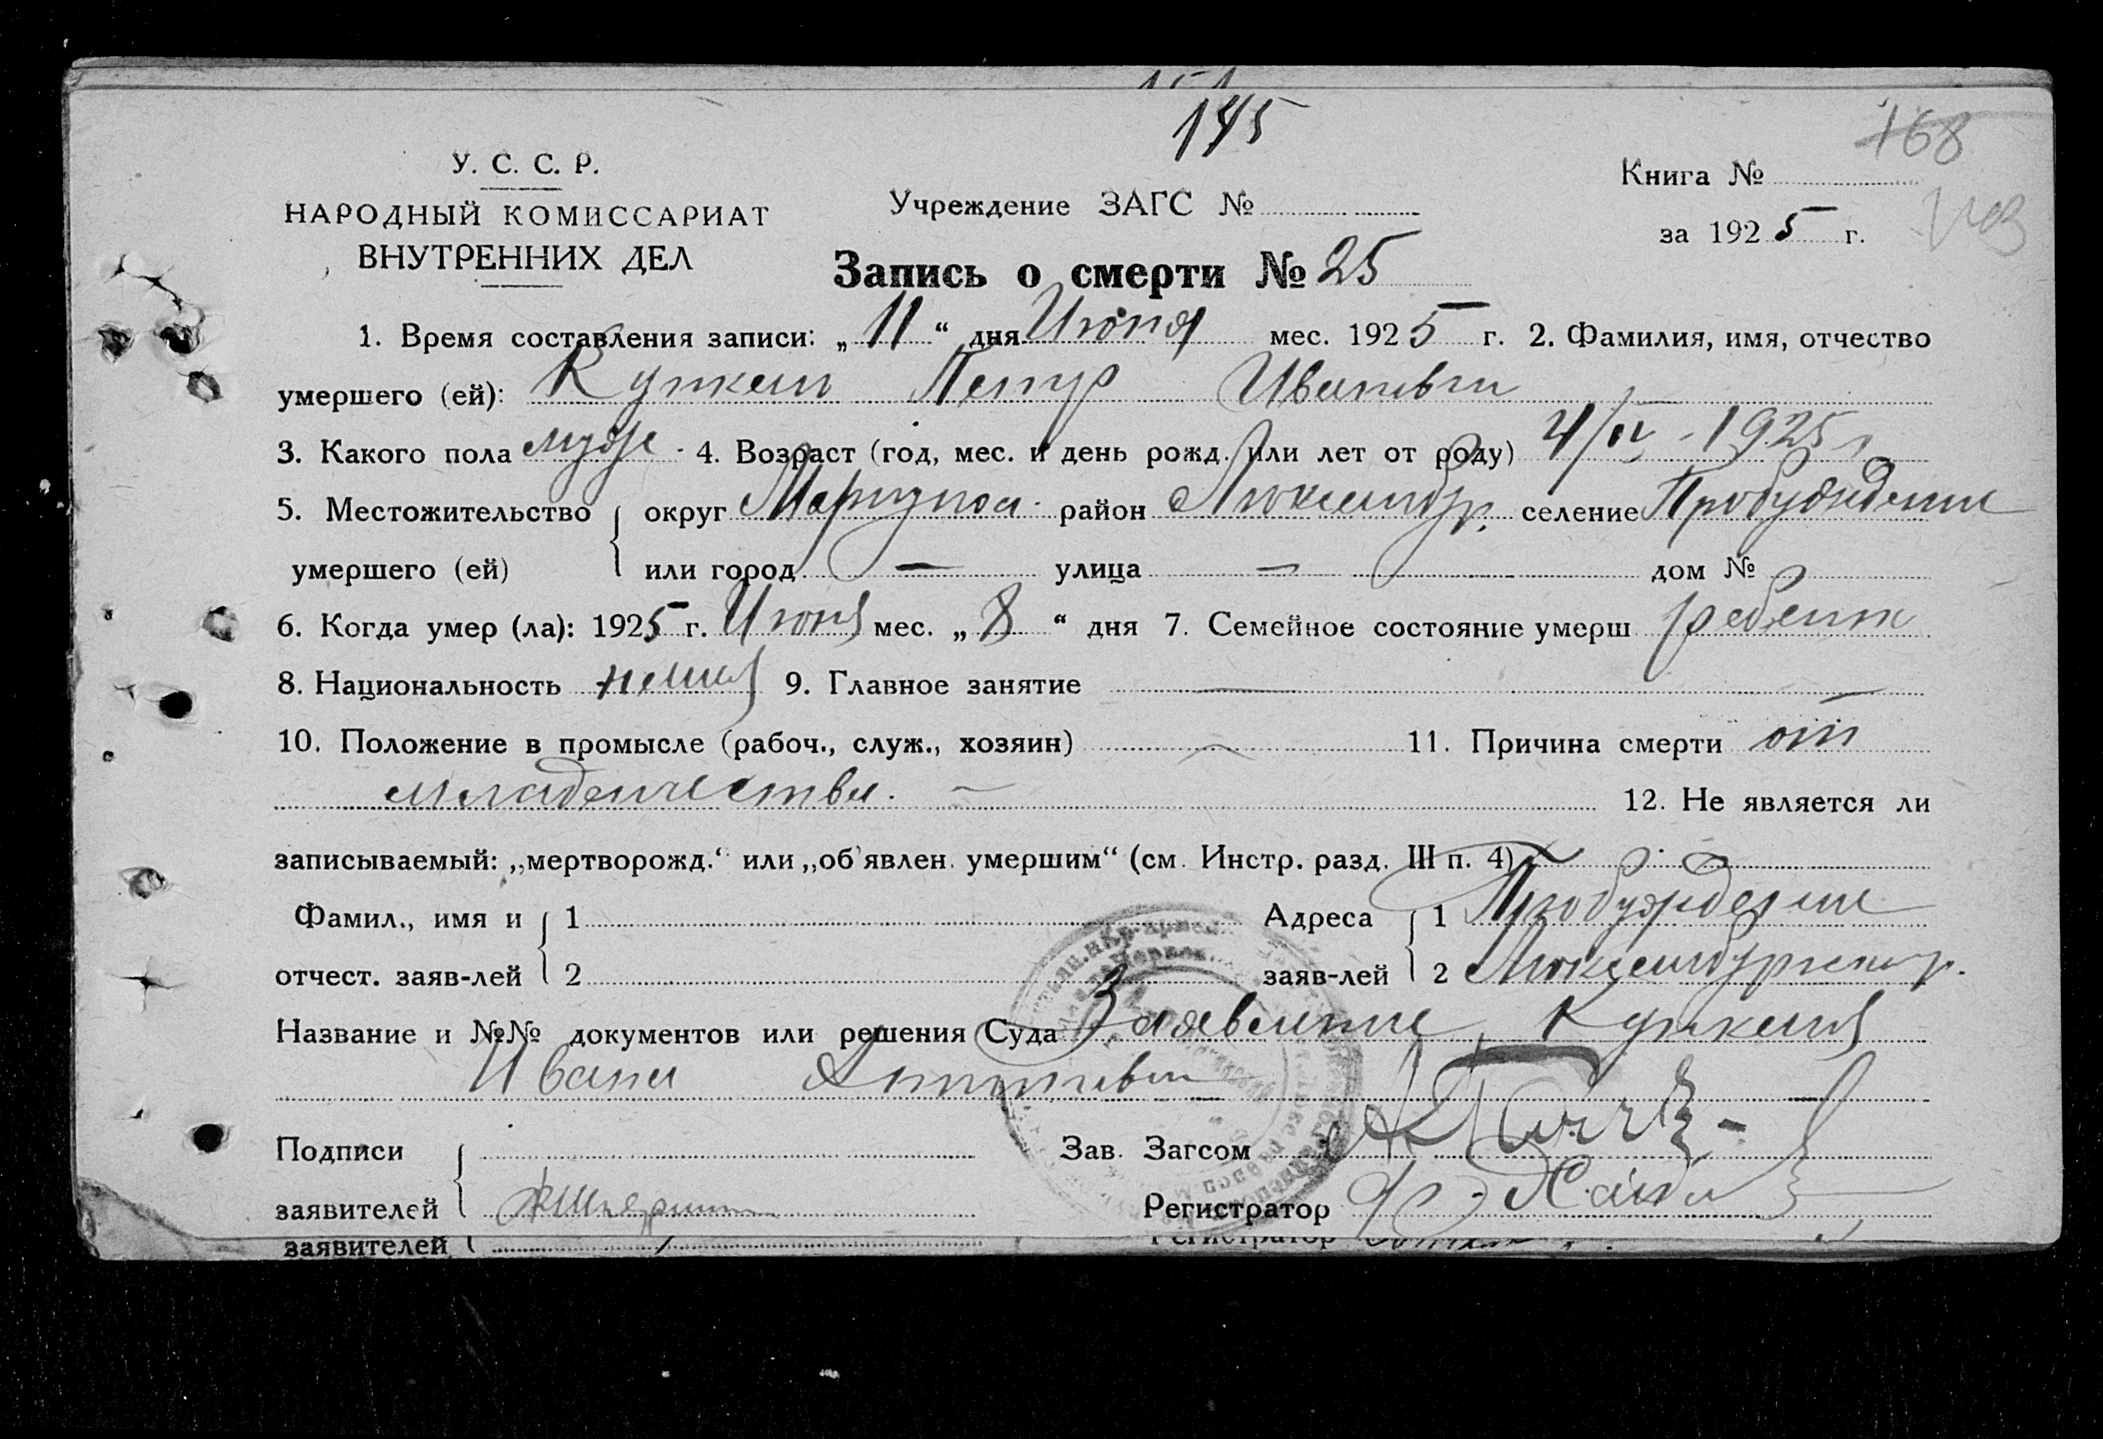 145
168
У. С. С. Р.
НАРОДНЫЙ КОМИССАРИАТ
ВНУТРЕННИХ ДЕЛ
Учреждение ЗАГС №
Книга №
за 1925 г.
Запись о смерти № 25
1. Время составления записи: „11“ дня Июня мес. 1925 г. 2. Фамилия, имя, отчество
умершего (ей): Петр Иванович
3. Какого пола муж. 4. Возраст (год, мес. и день рожд. или лет от роду) 1925
5. Местожительство округ Мариупол. район Люксембур. селение Пробуждение
умершего (ей) или город — улица — дом №
6. Когда умер (ла): 1925 г. Июня мес. „8“ дня 7. Семейное состояние умерш ребенок
8. Национальность немец 9. Главное занятие —
10. Положение в промысле (рабоч., служ., хозяин) 11. Причина смерти от
младенчества. —
12. Не является ли
записываемый: „мертворожд.“ или „об'явлен. умершим“ (см. Инстр. разд. III п. 4)
Фамил., имя и 1 Адреса 1 Пробуждение
отчест. заяв-лей 2 заяв-лей 2 Люксембургск. р.
Название и №№ документов или решения Суда Заявление
Ивана
Подписи Зав. Загсом
заявителей Регистратор
заявителей
Регистратор